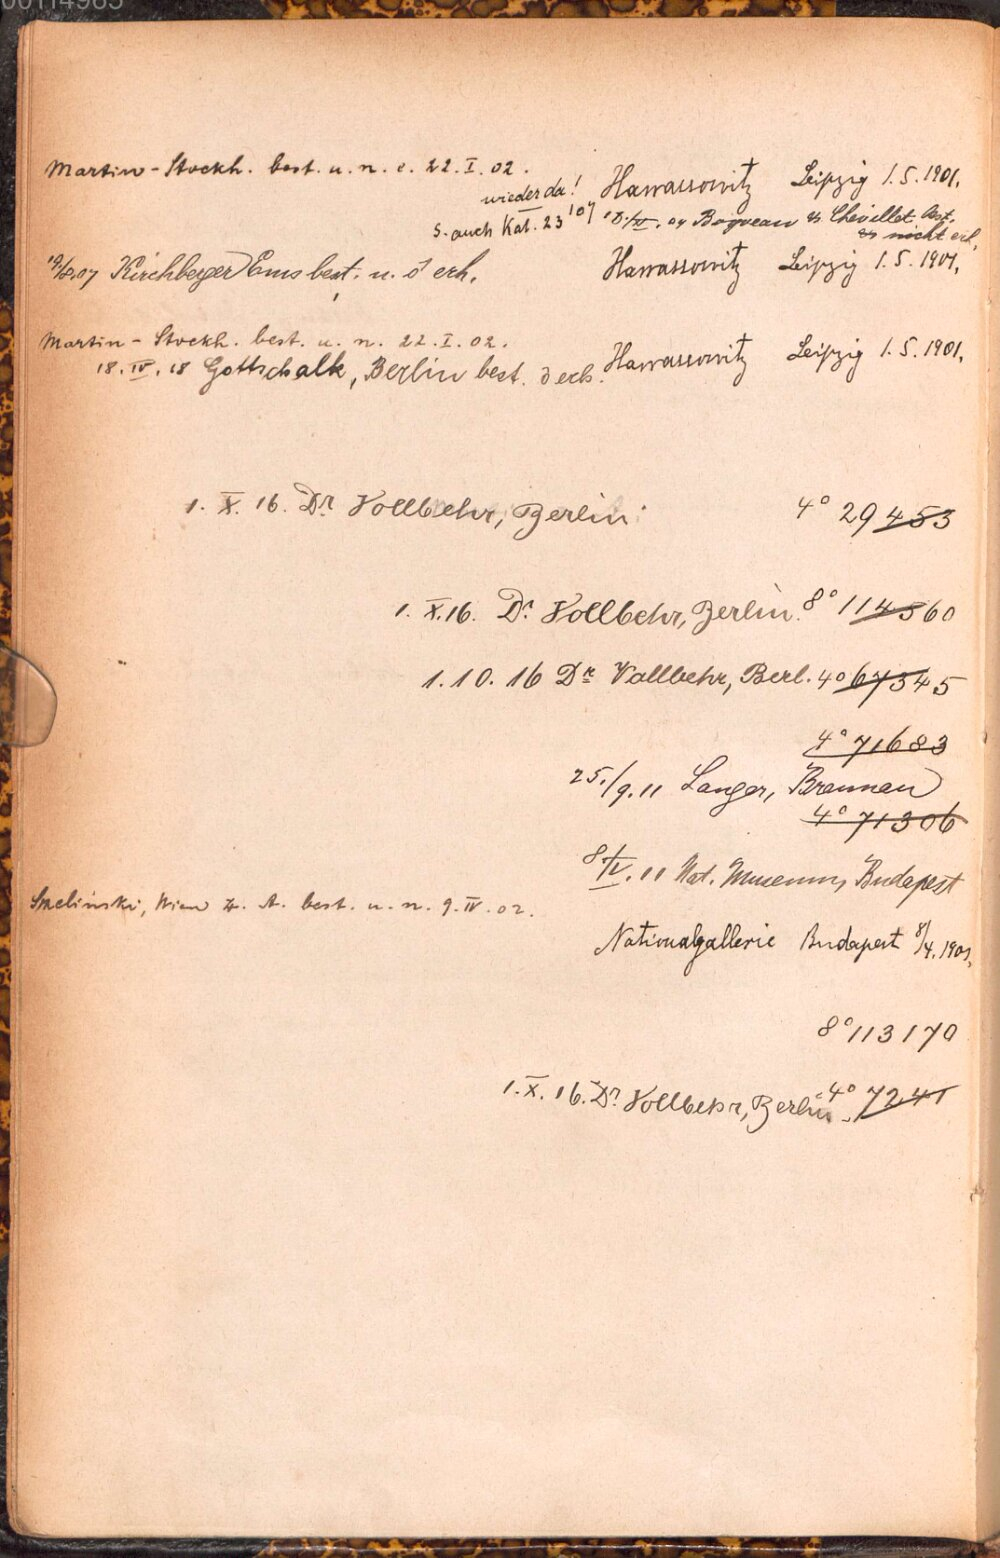 00114985
Martin-Stockh. best. u. n. e. 22.I.02.
Harrassowitz Leipzig 1.5.1901.
wieder da!
s. auch Kat. 23 107
best.
nicht erh.
Kirchberger Ems best. u. erh.
Harrassowitz Leipzig 1.5.1901.
Martin - Stockh. best. u. n. 22.I.02.
Harrassowitz Leipzig 1.5.1901.
18.IV.18 Gottschalk, Berlin best. erh.
1. X. 16. Dr Vollbehr, Berlin. 4° 29453
1. X.16. Dr. Vollbehr, Berlin. 8° 114560
1.10.16 Dr Vollbehr, Berl. 4° 67345
4° 71683
25./9.11 Langer, Braunau
4° 71306
8/IV.11 Nat. Museum, Budapest
Wien best. u. n. 9.IV.02.
Nationalgallerie Budapest 8/4.1901.
8° 113170
1.X.16. Dr. Vollbehr, Berlin. 4° 7241